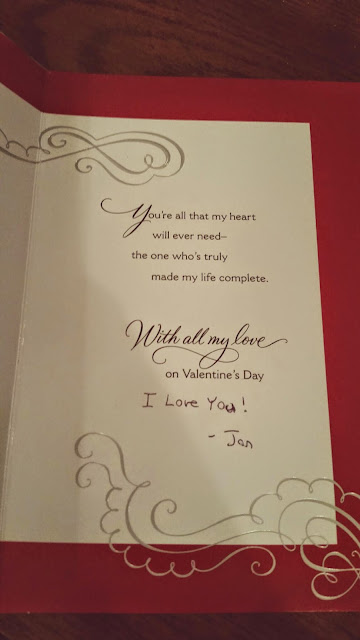 You're all that my heart
will ever need–
the one who's truly
made my life complete.
With all my love
on Valentine's Day
I Love You!
- Jan